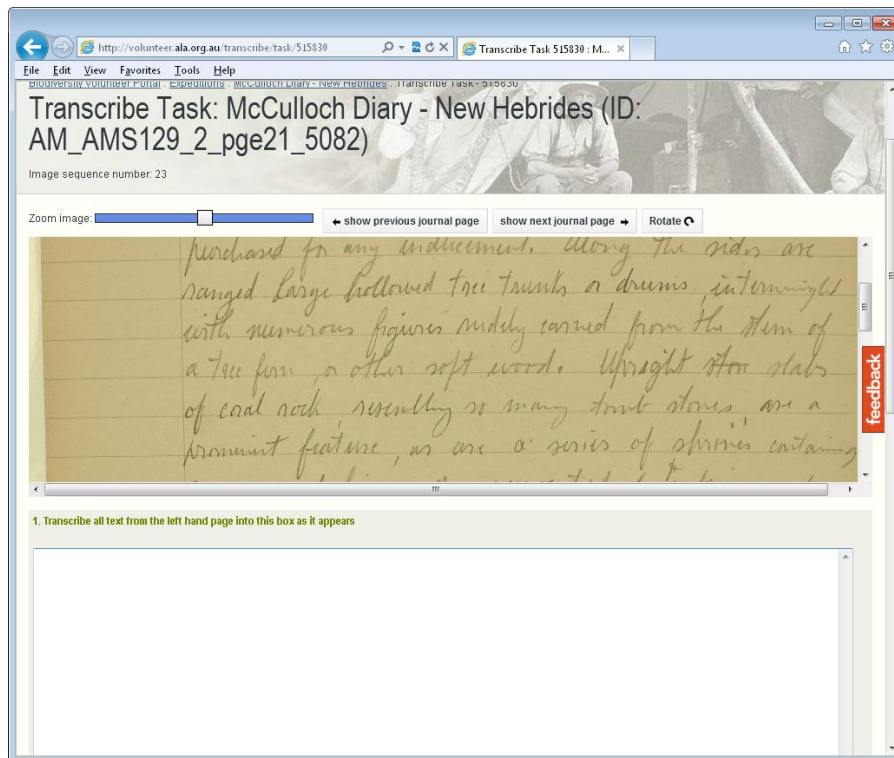 http://volunteer.ala.org.au/transcribe/task/515830
Transcribe Task 515830 : M...
File Edit View Favorites Tools Help
Biodiversity Volunteer Portal . Expeditions . McCulloch Diary - New Hebrides . Transcribe Task - 515830
Transcribe Task: McCulloch Diary - New Hebrides (ID:
AM_AMS129_2_pge21_5082)
Image sequence number: 23
Zoom image:
show previous journal page
show next journal page
Rotate
purchased for any inducement. Along the sides are
ranged large hollowed tree trunks or drums, intermingled
with numerous figures rudely carved from the stem of
a tree fern, or other soft wood. Upright stone slabs
of coral rock, resembling so many tomb stones, are a
prominent feature, as are a series of shrines containing
feedback
1. Transcribe all text from the left hand page into this box as it appears